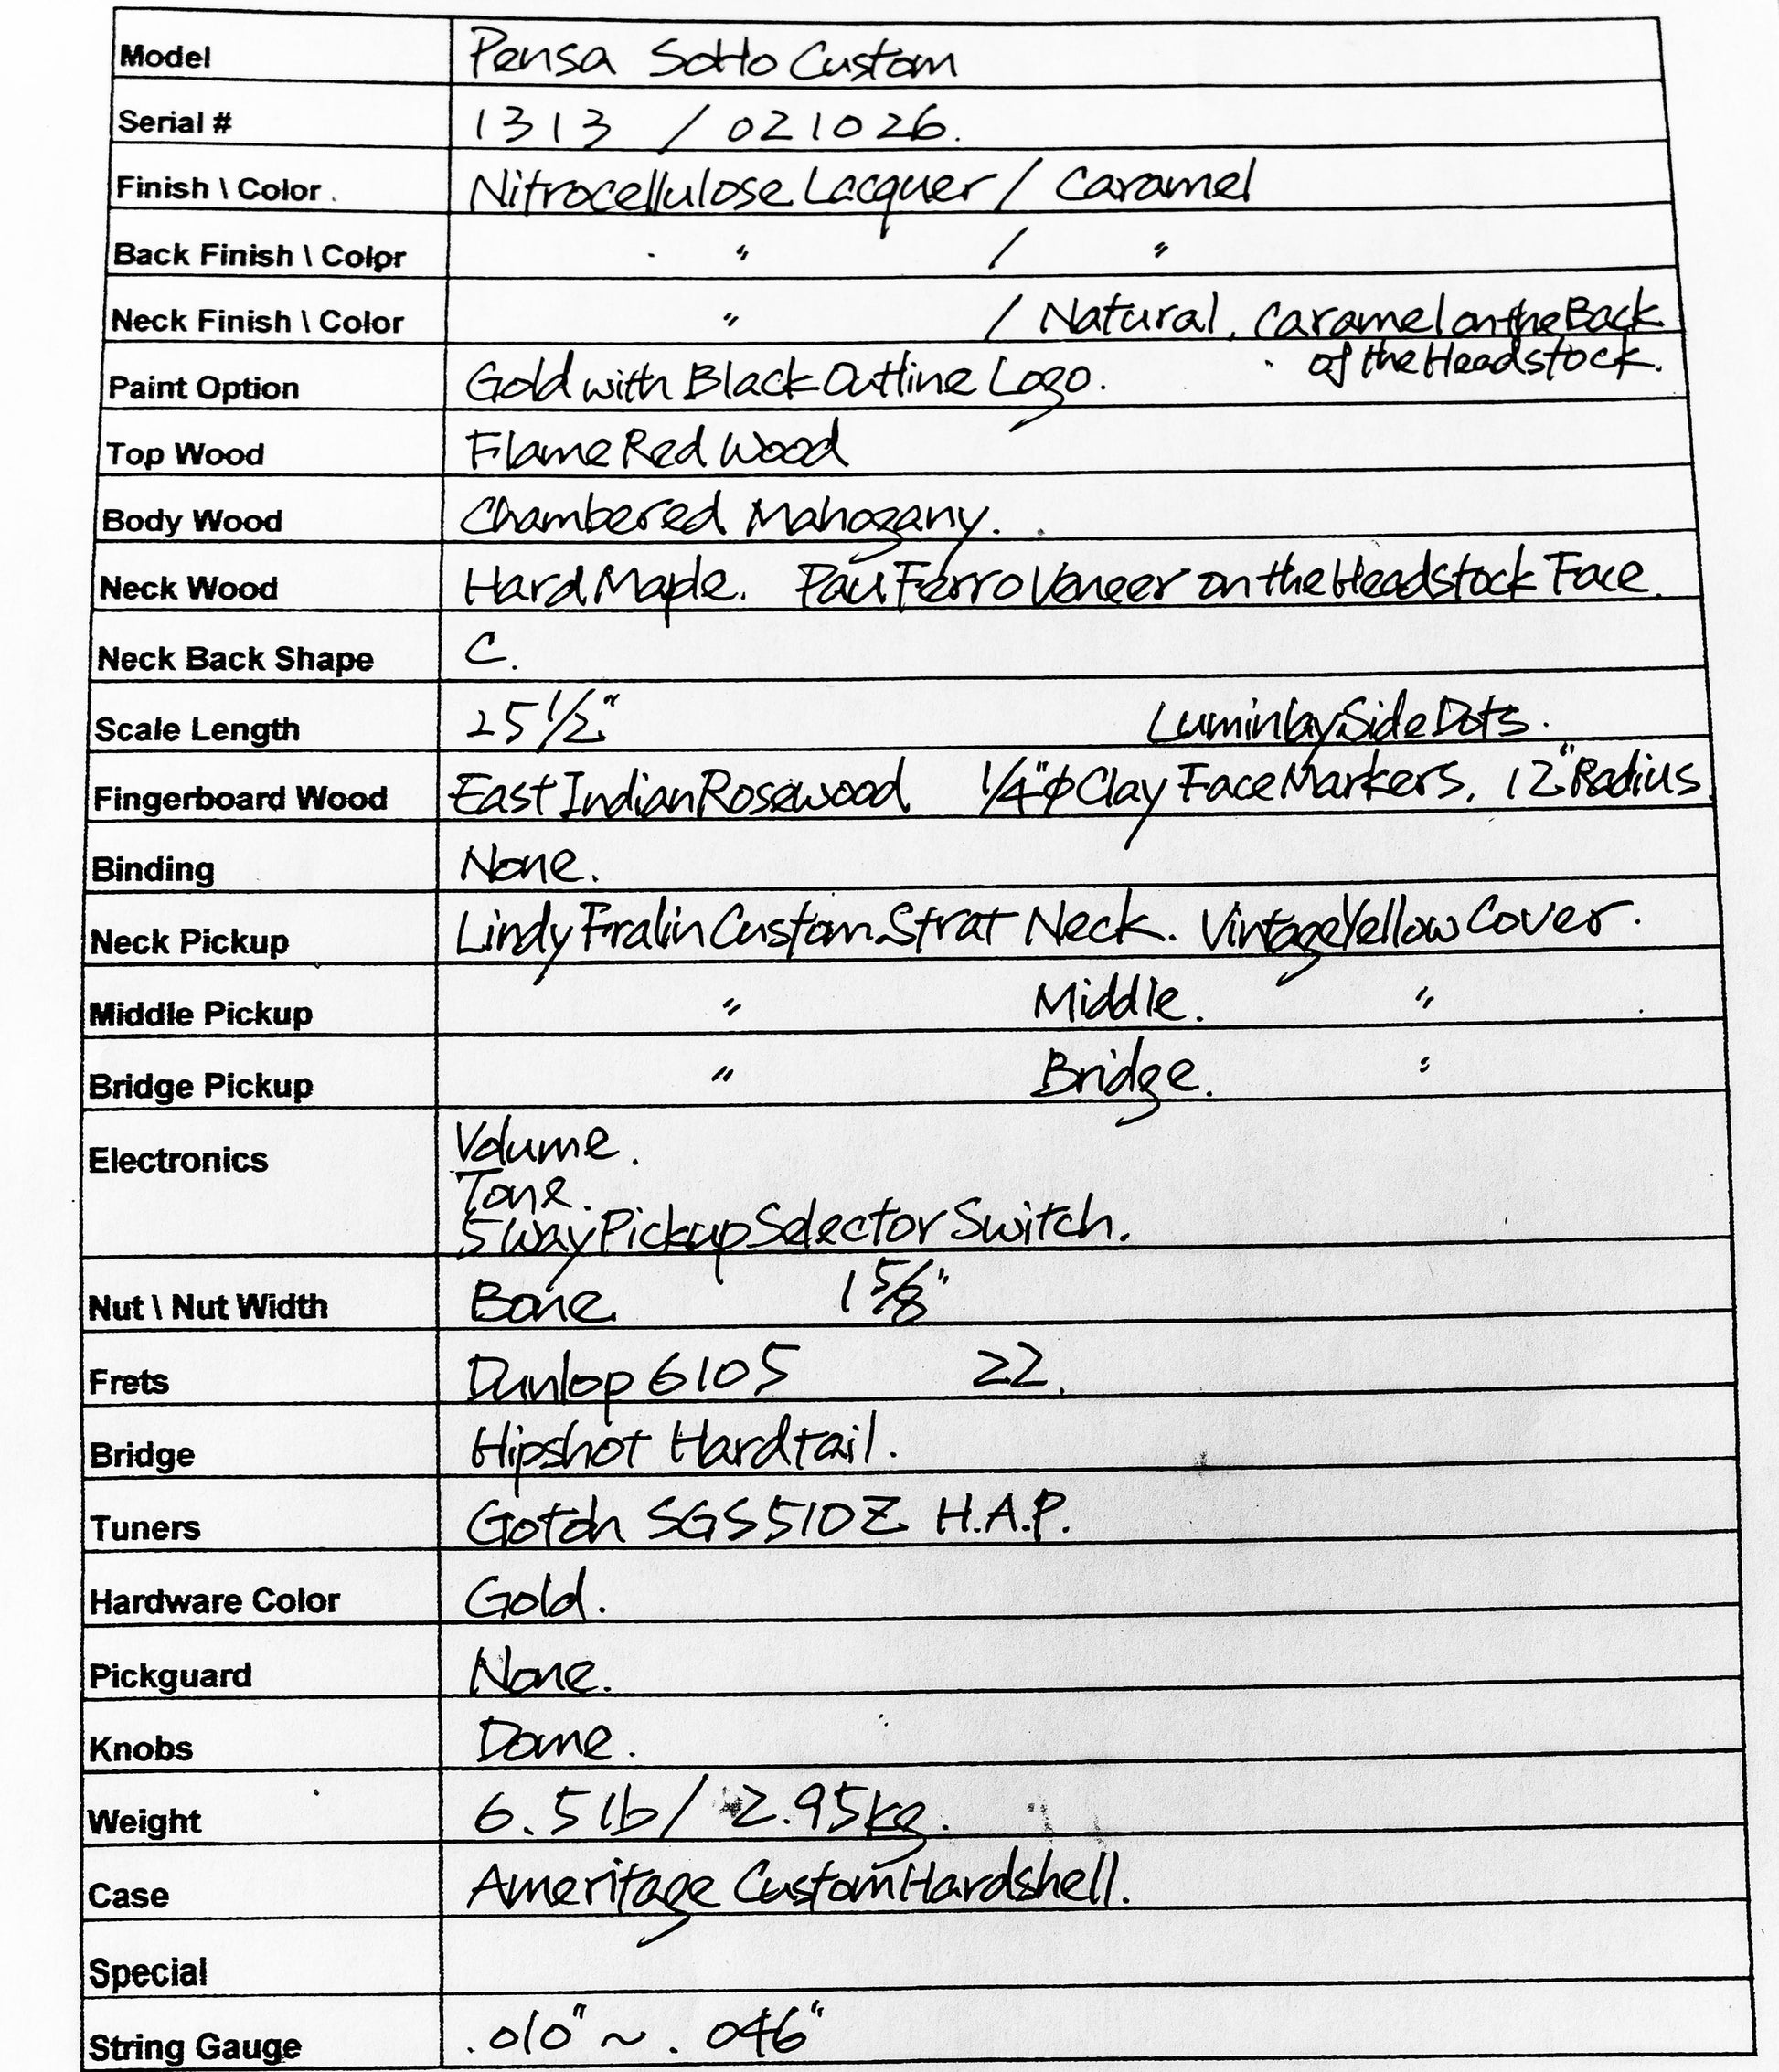 Model Pensa SoHo Custom
Serial # 1313 / 021026.
Finish \ Color. Nitrocellulose Lacquer / Caramel
Back Finish \ Color 〃 / 〃
Neck Finish \ Color 〃 / Natural, Caramel on the Back
of the Headstock.
Paint Option Gold with Black Outline Logo.
Top Wood Flame Red Wood
Body Wood Chambered Mahogany.
Neck Wood Hard Maple. Pau Ferro Veneer on the Headstock Face.
Neck Back Shape C.
Scale Length 25 1/2" Luminlay Side Dots.
Fingerboard Wood East Indian Rosewood 1/4"φ Clay Face Markers, 12" Radius.
Binding None.
Neck Pickup Lindy Fralin Custom Strat Neck. Vintage Yellow Cover.
Middle Pickup 〃 Middle. 〃
Bridge Pickup 〃 Bridge. 〃
Electronics Volume.
Tone.
5 Way Pickup Selector Switch.
Nut \ Nut Width Bone 1 5/8"
Frets Dunlop 6105 22.
Bridge Hipshot Hardtail.
Tuners Gotoh SGS510Z H.A.P.
Hardware Color Gold.
Pickguard None.
Knobs Dome.
Weight 6.5 lb / 2.95kg.
Case Ameritage Custom Hardshell.
Special
String Gauge .010" ~ .046"